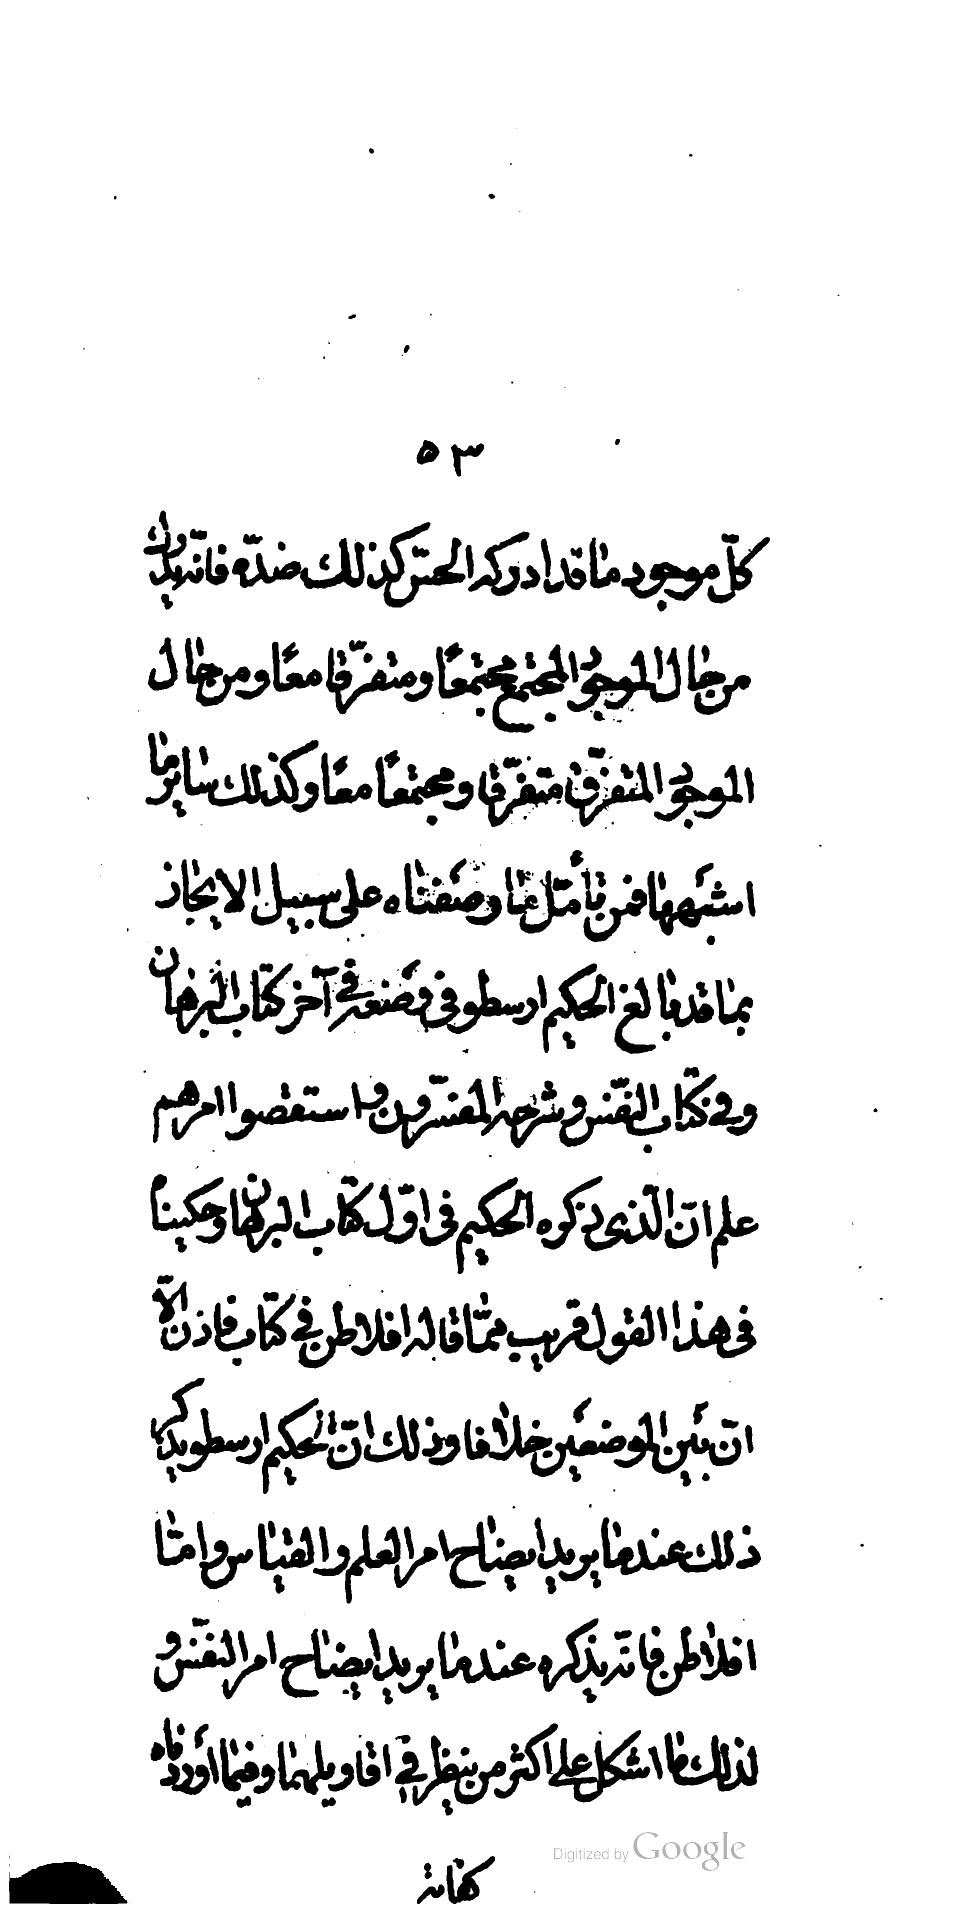 ٥٣
كلّ موجود ما قد ادركه الحسّ كذلك ضدّه فانّه يدرك
من حال الموجود المجتمع مجتمعًا ومتفرّقا معًا ومن حال
الموجود المتفرّق متفرّقا ومجتمعًا معًا وكذلك ساير ما
اشبهها فمن تأمّل ما وصفناه على سبيل الايجاز
بما قد بالغ الحكيم ارسطو في وصفه في آخر كتاب البرهان
وفي كتاب النفس وشرحه المفسّرون واستقصوا امرهم
علم انّ الّذى ذكره الحكيم في اوّل كتاب البرهان وحكيناه
في هذا القول قريب ممّا قاله افلاطن في كتاب فاذن الّا
انّ بين الموضعين خلافا وذلك انّ الحكيم ارسطو يذكر
ذلك عند ما يريد ايضاح امر العلم والقياس وامّا
افلاطن فانّه يذكره عند ما يريد ايضاح امر النفس و
لذلك ما اشكل على اكثر من ينظر في اقاويلهما وفيما اوردناه
كفاية
Digitized by Google